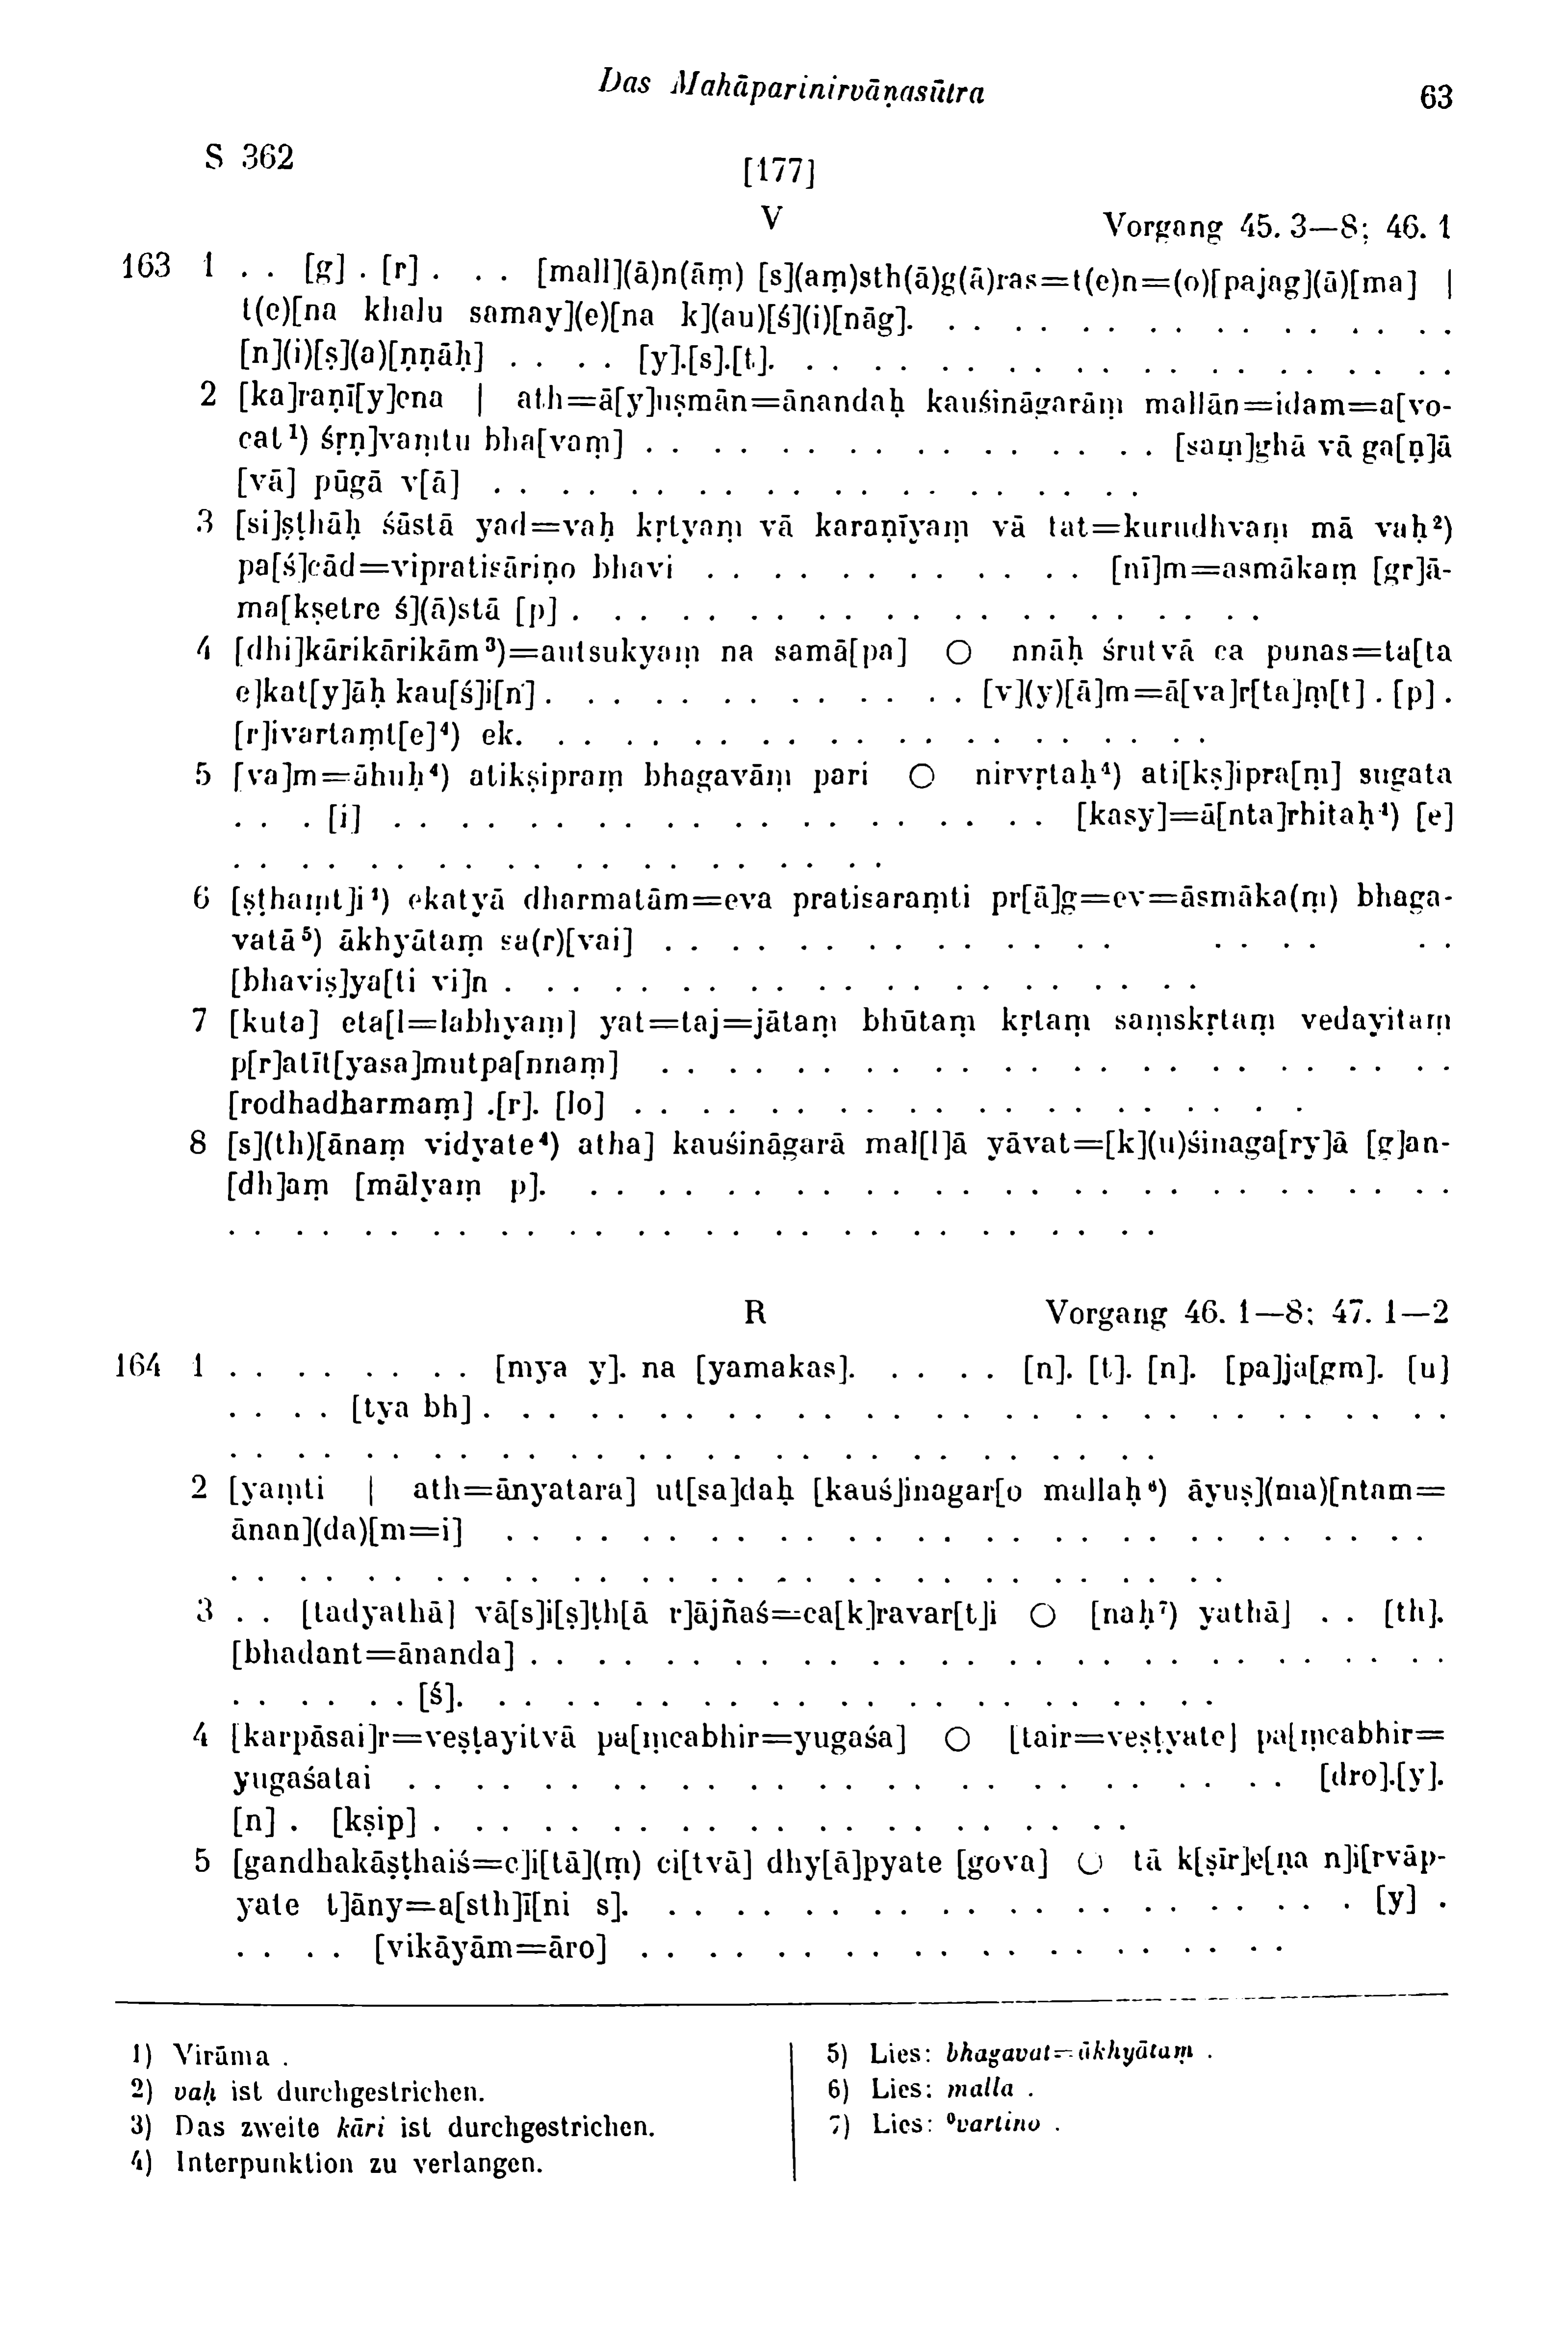 Das Mahāparinirvāṇasūtra 63
S 362 [177]
V Vorgang 45. 3—8; 46. 1
163 1 . . [g] . [r] . . . [mall](ā)n(āṃ) [s](aṃ)sth(ā)g(ā)ras=t(e)n=(o)[pajag](ā)[ma] |
t(e)[na khalu samay](e)[na k](au)[ś](i)[nāg]. . . . . . . . . . . . . . . . .
[n](i)[ṣ](a)[ṇṇāḥ] . . . . [y].[s].[t]. . . . . . . . . . . . . . . . . . . . .
2 [ka]raṇī[y]ena | ath=ā[y]uṣmān=ānandaḥ kauśināgarāṃ mallān=idam=a[vo-
cat¹) śṛṇ]vaṃtu bha[vaṃ] . . . . . . . . . . . . . . . . [saṃ]ghā vā ga[ṇ]ā
[vā] pūgā v[ā] . . . . . . . . . . . . . . . . . . . .
3 [si]ṣṭhāḥ śāstā yad=vaḥ kṛtyaṃ vā karaṇīyaṃ vā tat=kurudhvaṃ mā vaḥ²)
pa[ś]cād=vipratisāriṇo bhavi . . . . . . . . . . . . [nī]m=asmākaṃ [gr]ā-
ma[kṣetre ś](ā)stā [p] . . . . . . . . . . . . . . . . . . . . .
4 [dhi]kārikārikām³)=autsukyaṃ na samā[pa] ○ nnāḥ śrutvā ca punas=ta[ta
e]kat[y]āḥ kau[ś]i[n] . . . . . . . . . . . . . [v](y)[ā]m=ā[va]r[ta]ṃ[t] . [p] .
[r]ivartaṃt[e]⁴) ek. . . . . . . . . . . . . . . . . . . . . .
5 [va]m=āhuḥ⁴) atikṣipraṃ bhagavāṃ pari ○ nirvṛtaḥ⁴) ati[kṣ]ipra[ṃ] sugata
. . . [i] . . . . . . . . . . . . . . . . . . . . [kasy]=ā[nta]rhitaḥ⁴) [e]
. . . . . . . . . . . . . . . . . . . .
6 [ṣṭhaṃt]i⁴) ekatyā dharmatām=eva pratisaraṃti pr[ā]g=ev=āsmāka(ṃ) bhaga-
vatā⁵) ākhyātaṃ sa(r)[vai] . . . . . . . . . . . . . . . . . . . .
[bhaviṣ]ya[ti vi]n . . . . . . . . . . . . . . . . . . . . .
7 [kuta] eta[l=labhyaṃ] yat=taj=jātaṃ bhūtaṃ kṛtaṃ saṃskṛtaṃ vedayitaṃ
p[r]atīt[yasa]mutpa[nnaṃ] . . . . . . . . . . . . . . . . . . . . . . . .
[rodhadharmaṃ] .[r]. [lo] . . . . . . . . . . . . . . . . . . . .
8 [s](th)[ānaṃ vidyate⁴) atha] kauśināgarā mal[l]ā yāvat=[k](u)śinaga[ry]ā [g]an-
[dh]aṃ [mālyaṃ p]. . . . . . . . . . . . . . . . . . . . . . . . . . .
. . . . . . . . . . . . . . . . . . . . . . . . . . . .
R Vorgang 46. 1—8; 47. 1—2
164 1 . . . . . . . . [mya y]. na [yamakas]. . . . . [n]. [t]. [n]. [pa]ja[gm]. [u]
. . . . [tya bh] . . . . . . . . . . . . . . . . . . . . . . . . . . . . .
. . . . . . . . . . . . . . . . . . . . . . . . . . . .
2 [yaṃti | ath=ānyatara] ut[sa]daḥ [kauś]inagar[o mallaḥ⁶) āyuṣ](ma)[ntam=
ānan](da)[m=i] . . . . . . . . . . . . . . . . . . . . . . . . . . . .
. . . . . . . . . . . . . . . . . . . . . . . . . . . . . .
3 . . [tadyathā] vā[s]i[ṣ]ṭh[ā r]ājñaś=ca[k]ravar[t]i ○ [naḥ⁷) yathā] . . [th].
[bhadant=ānanda] . . . . . . . . . . . . . . . . . . . . . . . . . . . .
. . . . . . [ś]. . . . . . . . . . . . . . . . . . . . . . .
4 [karpāsai]r=veṣṭayitvā pa[ṃcabhir=yugaśa] ○ [tair=veṣṭyate] pa[ṃcabhir=
yugaśatai . . . . . . . . . . . . . . . . . . . . . . . . . . [dro].[y].
[n] . [kṣip] . . . . . . . . . . . . . . . . . . . . .
5 [gandhakāṣṭhaiś=c]i[tā](ṃ) ci[tvā] dhy[ā]pyate [gova] ○ tā k[ṣīr]e[ṇa n]i[rvāp-
yate t]āny=a[sth]ī[ni s]. . . . . . . . . . . . . . . . . . . . . . [y] .
. . . . [vikāyām=āro] . . . . . . . . . . . . . . . . . . . .
1) Virāma .
2) vaḥ ist durchgestrichen.
3) Das zweite kāri ist durchgestrichen.
4) Interpunktion zu verlangen.
5) Lies: bhagavat=ākhyātaṃ .
6) Lies: malla .
7) Lies: °vartino .